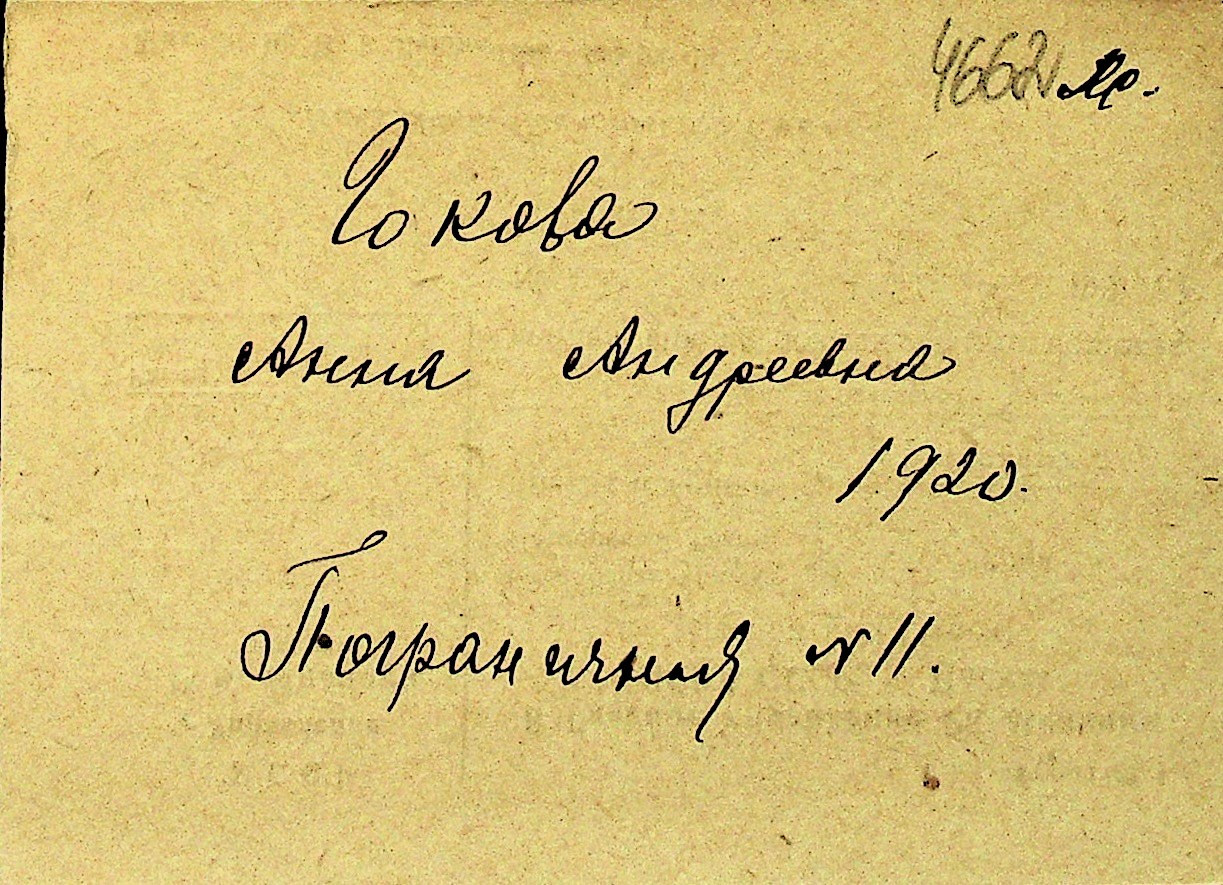 4662 Мр.
Чокова
Анна Андреевна
1920.
Пограничная № 11.